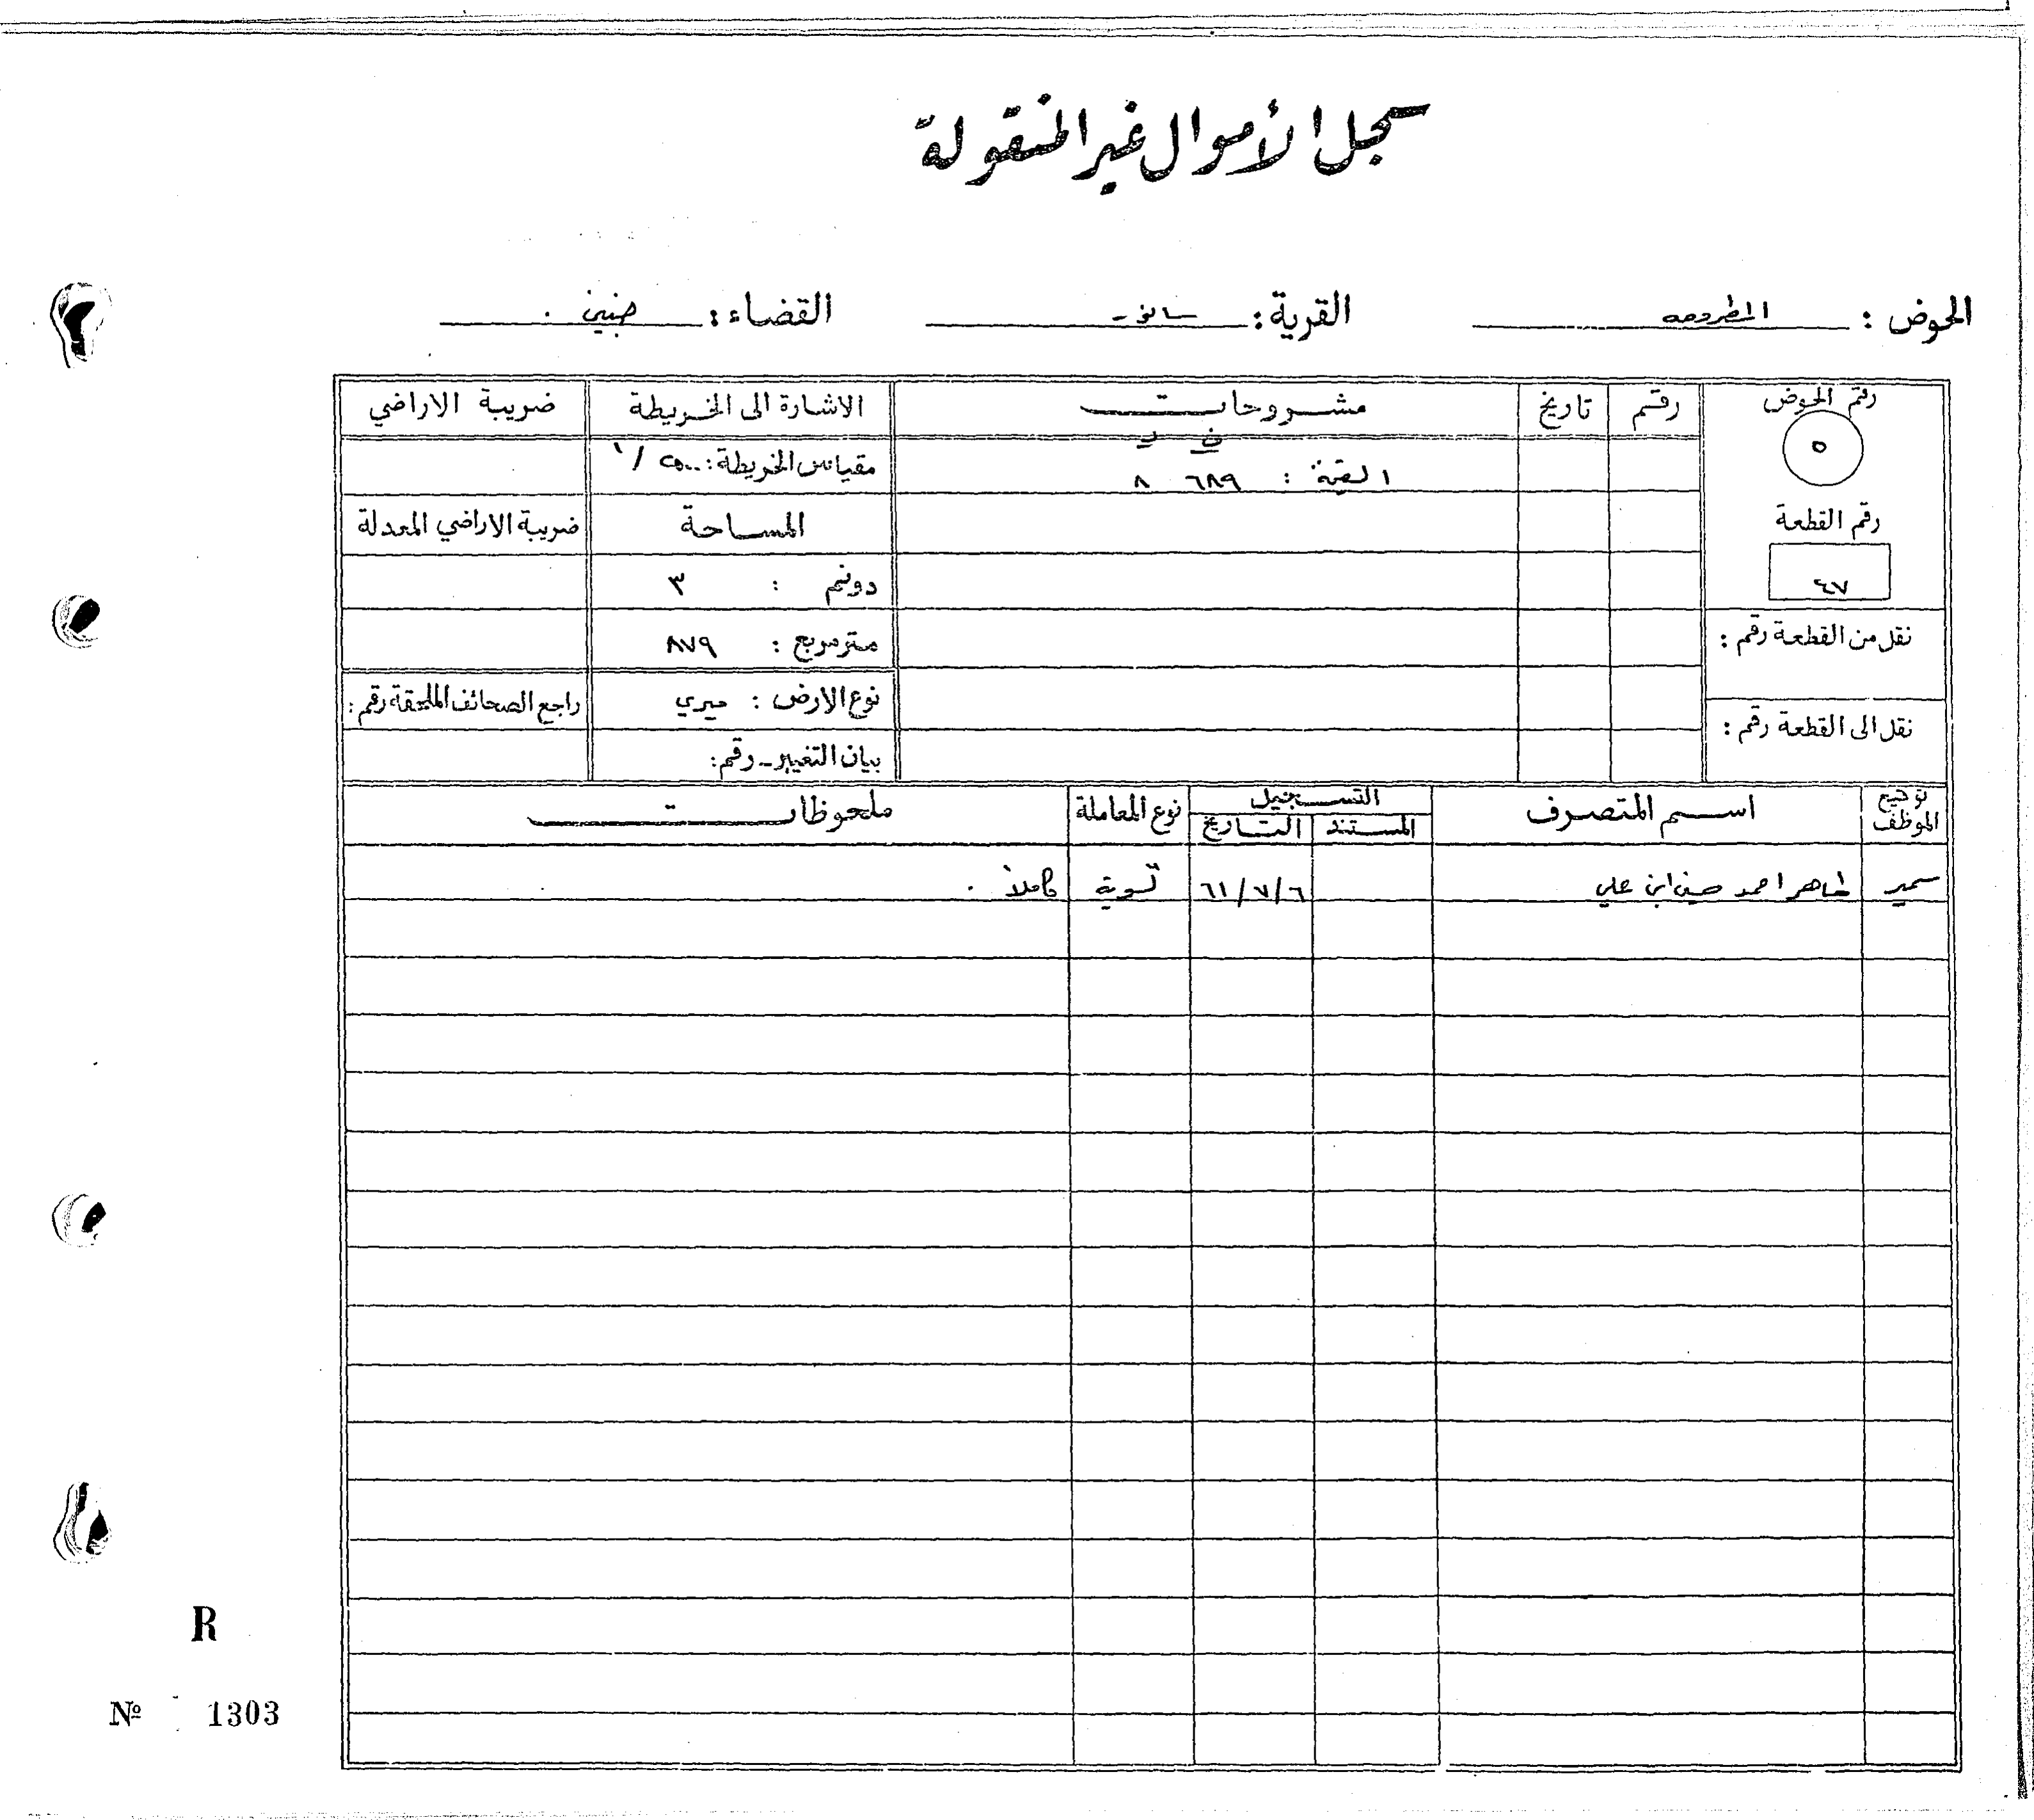 سجل الأموال غير المنقولة
الحوض : المطروحه القرية : سانور القضاء : جنين .
رقم الحوض رقم تاريخ مشروحات الاشارة الى الخريطة ضريبة الاراضي
٥ ف د مقياس الخريطة : ١/
القيمة : ٦٨٩ ٨
رقم القطعة المساحة ضريبة الاراضي المعدلة
٤٧ دونم : ٣
نقل من القطعة رقم : مترمربع : ٨٧٩
نوع الارض : ميري راجع الصحائف الملحقة رقم :
نقل الى القطعة رقم : بيان التغيير - رقم :
توقيع الموظف اسم المتصرف التسجيل نوع المعاملة ملحوظات
المستند التاريخ
سمير طاهر احمد حسين ابن علي ٦١/٧/٦ تسوية كاملاً .
R
№ 1303